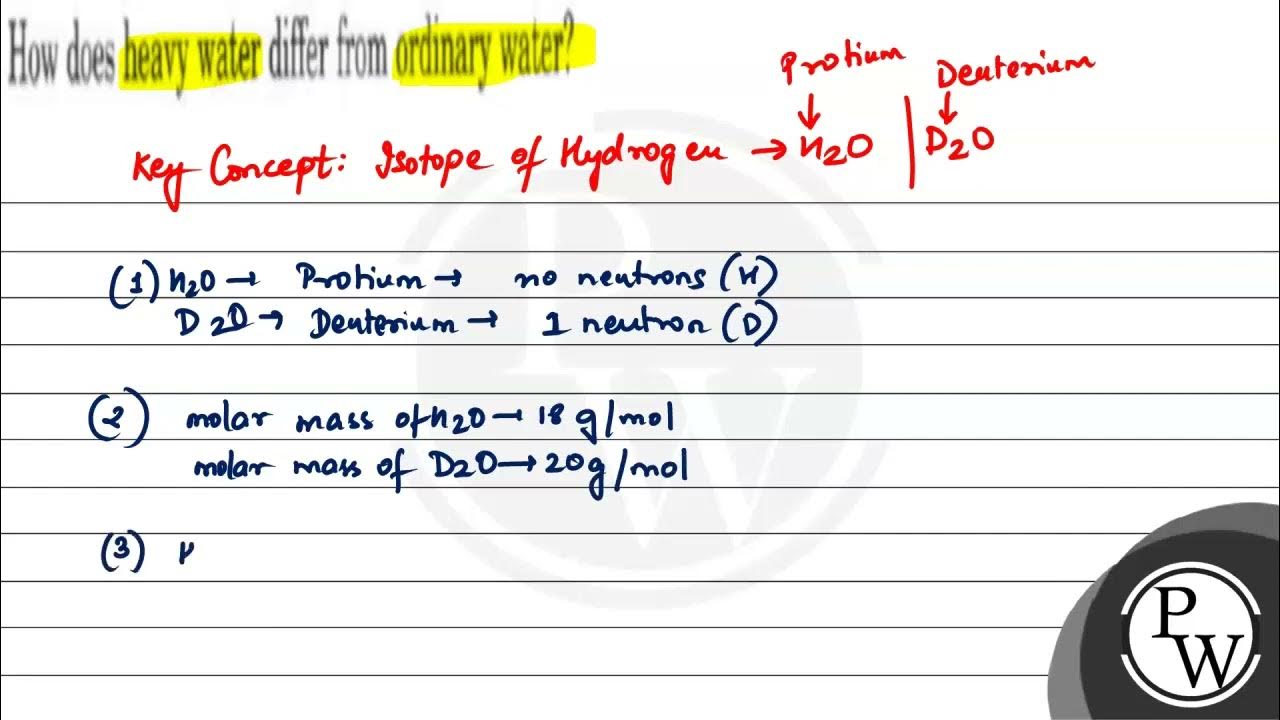 How does heavy water differ from ordinary water?
Protium Deuterium
Key Concept: Isotope of Hydrogen → H2O | D2O
(1) H2O → Protium → no neutrons (H)
D2O → Deuterium → 1 neutron (D)
(2) molar mass of H2O → 18 g/mol
molar mass of D2O → 20 g/mol
(3)
PW
PW